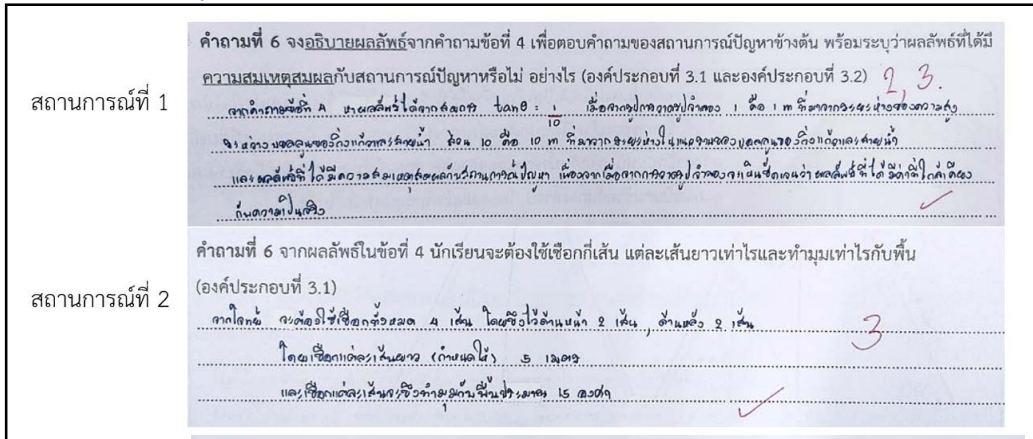 คำถามที่ 6 จงอธิบายผลลัพธ์จากคำถามข้อที่ 4 เพื่อตอบคำถามของสถานการณ์ปัญหาข้างต้น พร้อมระบุว่าผลลัพธ์ที่ได้มี
ความสมเหตุสมผลกับสถานการณ์ปัญหาหรือไม่ อย่างไร (องค์ประกอบที่ 3.1 และองค์ประกอบที่ 3.2) 2, 3.
สถานการณ์ที่ 1
จากคำถามข้อที่ 4 หาผลลัพธ์ได้จากสมการ tanθ = 1/10 เมื่อจากรูปจำลอง 1 คือ 1 m ที่มาจากระยะห่างของความสูง
ระหว่าง ของกิ่งแก้วและสายน้ำ ส่วน 10 คือ 10 m ที่มาจากระยะห่างในแนว ของกิ่งแก้วและสายน้ำ
และผลลัพธ์ที่ได้มีความสมเหตุสมผลกับสถานการณ์ปัญหา เนื่องจากเมื่อจากการวาดรูปจำลองจะเห็นชัดเจนว่าผลลัพธ์ที่ได้มีค่าที่ใกล้เคียง
กับความเป็นจริง
คำถามที่ 6 จากผลลัพธ์ในข้อที่ 4 นักเรียนจะต้องใช้เชือกกี่เส้น แต่ละเส้นยาวเท่าไรและทำมุมเท่าไรกับพื้น
(องค์ประกอบที่ 3.1)
สถานการณ์ที่ 2
จากโจทย์ จะต้องใช้เชือกทั้งหมด 4 เส้น โดยขึงไว้ด้านหน้า 2 เส้น , ด้านหลัง 2 เส้น 3
โดยเชือกแต่ละเส้นยาว (กำหนดให้) 5 เมตร
และเชือกแต่ละเส้นจะขึงทำมุมกับพื้นประมาณ 15 องศา